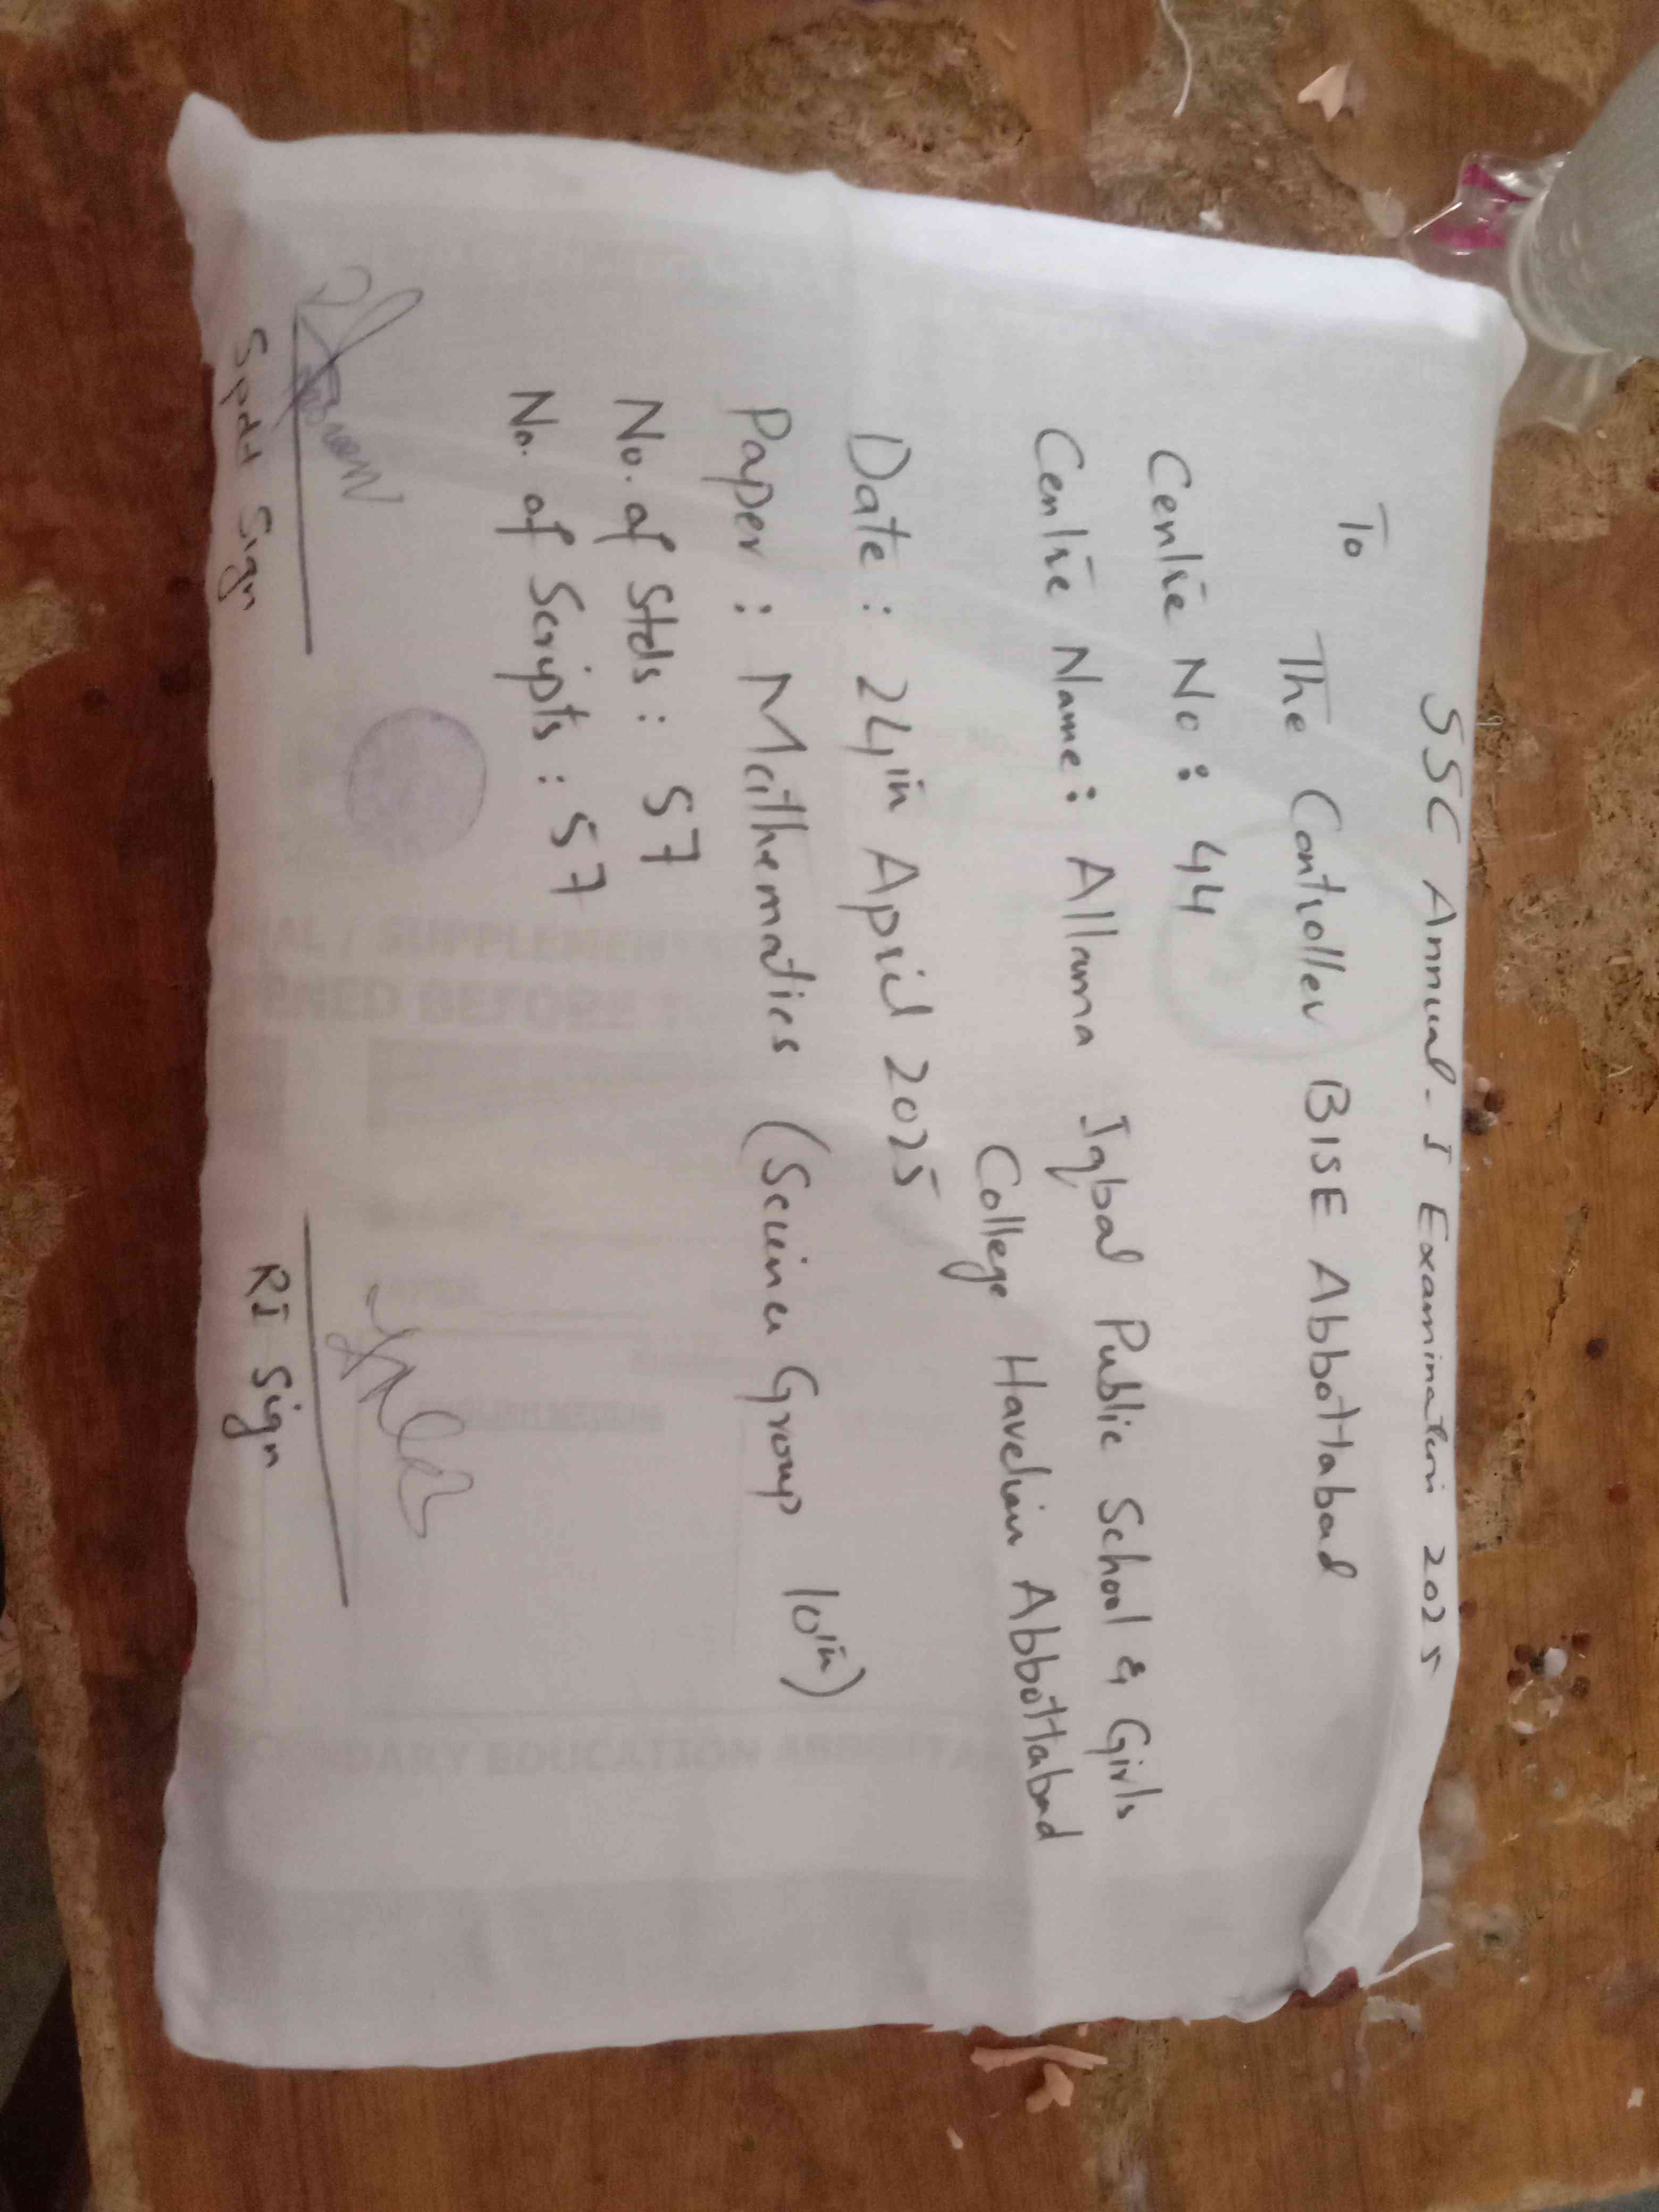 SSC Annual-I Examination 2025
To
The Controller BISE Abbottabad
Centre No: 44
Centre Name: Allama Iqbal Public School & Girls
College Havelian Abbottabad
Date: 24th April 2025
Paper: Mathematics (Science Group 10th)
No. of Stds: 57
No. of Scripts: 57
Spdt Sign
RI Sign